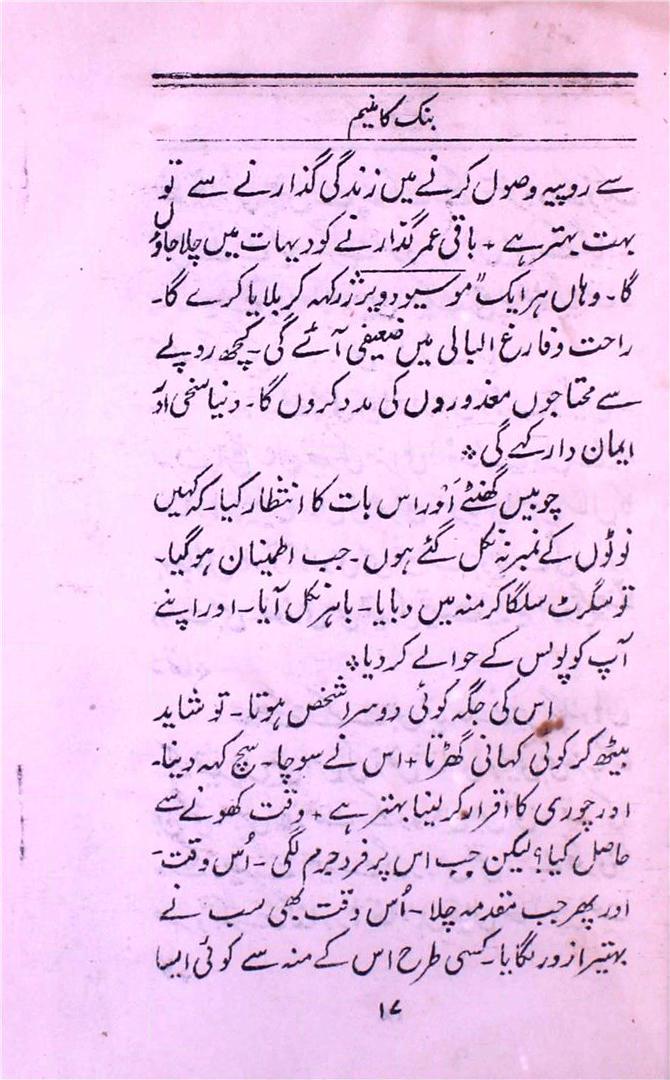 بنک کا منیم
سے روپیہ وصول کرنے میں زندگی گذارنے سے تو
بہت بہتر ہے + باقی عمر گذارنے کو دیہات میں چلا جاؤں
گا۔ وہاں ہر ایک "موسیو دویرژر کہہ کر بلایا کرے گا۔
راحت و فارغ البالی میں ضعیفی آئے گی۔ کچھ روپے
سے محتاجوں معذوروں کی مدد کروں گا۔ دنیا سخی اور
ایمان دار کہے گی ❊
چوبیس گھنٹے اَور اس بات کا انتظار کیا۔ کہ کہیں
نوٹوں کے نمبر نہ نکل گئے ہوں۔ جب اطمینان ہو گیا۔
تو سگرٹ سلگا کر منہ میں دبایا۔ باہر نکل آیا۔ اور اپنے
آپ کو پولس کے حوالے کر دیا ❊
اس کی جگہ کوئی دوسرا شخص ہوتا۔ تو شاید
بیٹھ کر کوئی کہانی گھڑتا + اس نے سوچا۔ سچ کہہ دینا۔
اور چوری کا اقرار کر لینا بہتر ہے + وقت کھونے سے
حاصل کیا؟ لیکن جب اس پر فرد جرم لگی۔ اُس وقت۔
اور پھر جب مقدمہ چلا۔ اُس وقت بھی سب نے
بہتیرا زور لگایا۔ کسی طرح اس کے منہ سے کوئی ایسا
۱۷